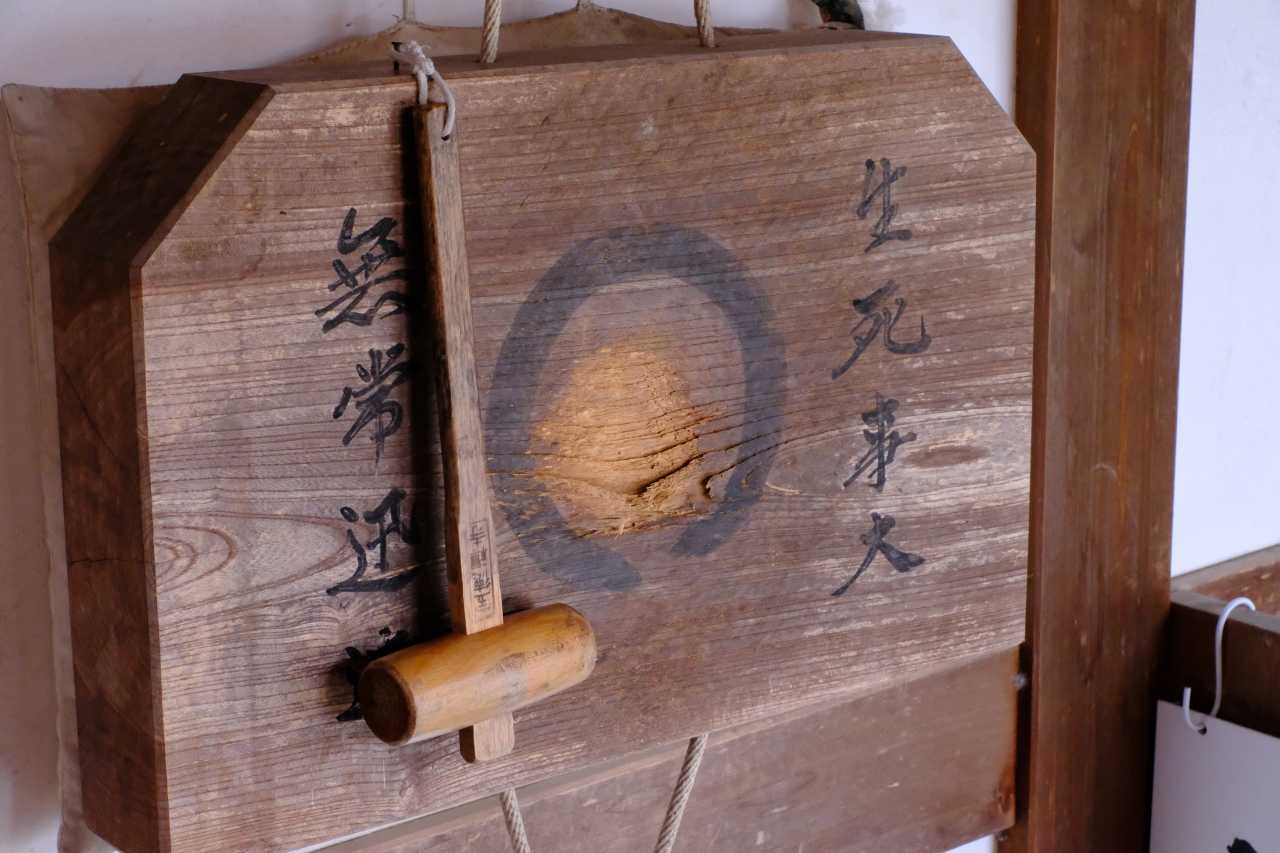 生死事大
無常迅